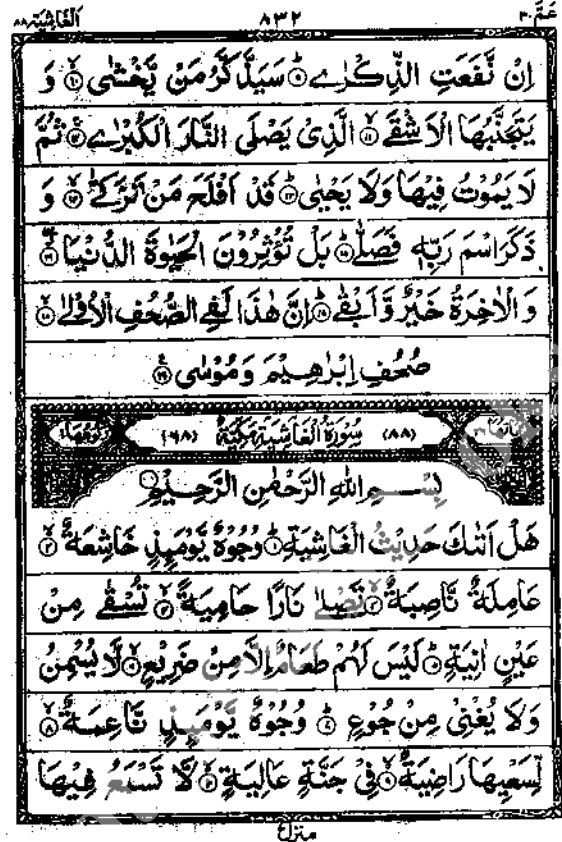 عَمَّ ٣٠ ٨٣٢ اَلْغَاشِيَة ٨٨
اِنْ نَّفَعَتِ الذِّكْرٰى ۹ سَيَذَّكَّرُ مَنْ يَّخْشٰى ۱۰ وَ
يَتَجَنَّبُهَا الْاَشْقَى ۱۱ الَّذِىْ يَصْلَى النَّارَ الْكُبْرٰى ۱۲ ثُمَّ
لَا يَمُوْتُ فِيْهَا وَلَا يَحْيٰى ۱۳ قَدْ اَفْلَحَ مَنْ تَزَكّٰى ۱۴ وَ
ذَكَرَ اسْمَ رَبِّهٖ فَصَلّٰى ۱۵ بَلْ تُؤْثِرُوْنَ الْحَيٰوةَ الدُّنْيَا ۱۶
وَ الْاٰخِرَةُ خَيْرٌ وَّ اَبْقٰى ۱۷ اِنَّ هٰذَا لَفِى الصُّحُفِ الْاُوْلٰى ۱۸
صُحُفِ اِبْرٰهِيْمَ وَ مُوْسٰى ۱۹
(٨٨) سُوْرَةُ الْغَاشِيَةِ مَكِّيَّةٌ (٦٨)
بِسْمِ اللّٰهِ الرَّحْمٰنِ الرَّحِيْمِ
هَلْ اَتٰىكَ حَدِيْثُ الْغَاشِيَةِ ۱ وُجُوْهٌ يَّوْمَئِذٍ خَاشِعَةٌ ۲
عَامِلَةٌ نَّاصِبَةٌ ۳ تَصْلٰى نَارًا حَامِيَةً ۴ تُسْقٰى مِنْ
عَيْنٍ اٰنِيَةٍ ۵ لَيْسَ لَهُمْ طَعَامٌ اِلَّا مِنْ ضَرِيْعٍ ۶ لَّا يُسْمِنُ
وَلَا يُغْنِىْ مِنْ جُوْعٍ ۷ وُجُوْهٌ يَّوْمَئِذٍ نَّاعِمَةٌ ۸
لِّسَعْيِهَا رَاضِيَةٌ ۹ فِىْ جَنَّةٍ عَالِيَةٍ ۱۰ لَّا تَسْمَعُ فِيْهَا
منزل